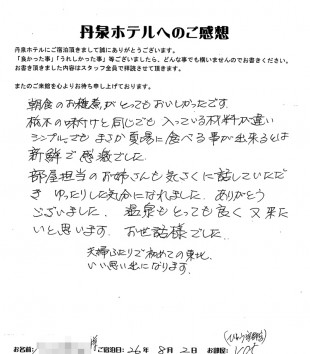 丹泉ホテルへのご感想
丹泉ホテルにご宿泊頂きまして誠にありがとうございます。
「良かった事」「うれしかった事」等ございましたら、どんな事でも構いませんのでお書きください。
お書き頂きました内容はスタッフ全員で拝読させて頂きます。
またのご来館を心よりお待ち申し上げております。
朝食のお雑煮がとってもおいしかったです。
栃木の味付けと同じでも入っている材料が違い
シンプルでもまさか真夏に食べる事が出来るとは
新鮮で感激でした。
部屋担当のお姉さんも気さくに話していただ
き ゆったりした気分になれました。ありがとう
ございました。温泉もとても良く又来た
いと思います。お世話様でした。
夫婦ふたりで初めての東北
いい思い出になります。
お名前 様 ご宿泊日:26年 8月 2日 お部屋: